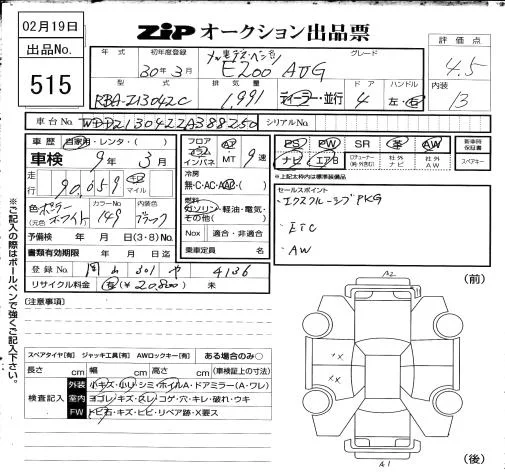 02月19日
ZIP オークション出品票
出品No.
515
年式 初年度登録 グレード
30年3月
E200 AVG
評価点
4.5
内装
13
型式 排気量 ドア ハンドル
RBA-213042C 1,991 ディーラー・並行 4 左・右
車台No. WDD2130422A388250 シリアルNo.
車歴 自家用・レンタ・( )
車検 9年3月
走行 90,059 km マイル
色 ポーラーホワイト (元色) カラーNo. 149 内装色 ブラック
予備検 年 月 日(3・8)No.
書類有効期限 年 月 日迄
登録No. 岡山 301 や 4136
リサイクル料金 有(¥20,800) 未
フロア コラム インパネ AT MT 9速
冷房
無・C・AC・AAC・( )
燃料
ガソリン・軽油・電気・その他( )
Nox 適合・非適合
乗車定員 名
PS PW SR 革 AW
ナビ エアB 社外ナビ 社外AW
新車時保証書
スペアキー
※上記太枠内は標準装備品
セールスポイント
・エクスクルーシブPKG
・ETC
・AW
(注意事項)
スペアタイヤ[有] ジャッキ工具[有] AWロックキー[有] ある場合のみ○
長さ cm 幅 cm 高さ cm (車検証上の寸法)
検査記入
外装 小キズ・小U・シミ・ホイルA・ドアミラー(A・ワレ)
室内 ヨゴレ・キズ・スレ・コゲ・穴・キレ・破れ・ウキ
FW トビ石・キズ・ヒビ・リペア跡・X要ス
※ご記入の際はボールペンで強くご記入下さい。
(前)
A2
××
×
A1
(後)